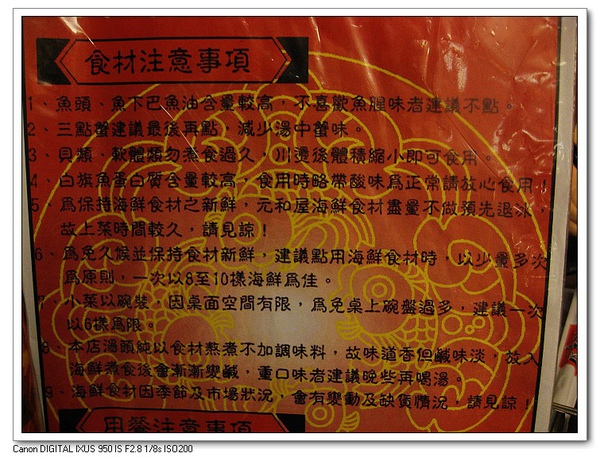 食材注意事項
1、魚頭、魚下巴魚油含量較高，不喜歡魚腥味者建議不點。
2、三點蟹建議最後再點，減少湯中蟹味。
3、貝類、軟體類勿煮食過久，川燙後體積縮小即可食用。
4、白旗魚蛋白質含量較高，食用時略帶酸味為正常請放心食用！
5、為保持海鮮食材之新鮮，元和屋海鮮食材盡量不做預先退冰，
故上菜時間較久，請見諒！
6、為免久候並保持食材新鮮，建議點用海鮮食材時，以少量多次
為原則，一次以8至10樣海鮮為佳。
7、小菜以碗裝，因桌面空間有限，為免桌上碗盤過多，建議一次
以6樣為限。
8、本店湯頭純以食材熬煮不加調味料，故味道香但鹹味淡，放入
海鮮煮食後會漸漸變鹹，重口味者建議晚些再喝湯。
9、海鮮食材因季節及市場狀況，會有變動及缺貨情況，請見諒！
用餐注意事項
Canon DIGITAL IXUS 950 IS F2.8 1/8s ISO200